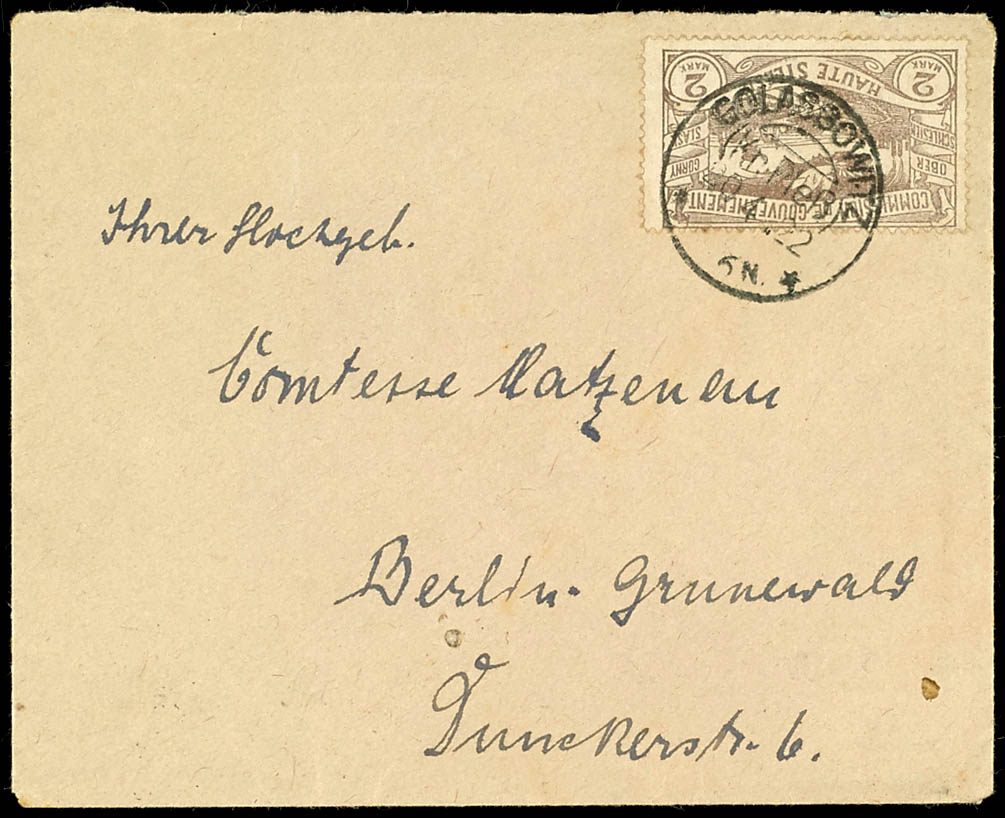 2 MARK HAUTE SILÉSIE 2 MARK
GORNY SLASK
OBER SCHLESIEN
COMMISSION DE GOUVERNEMENT
GOLASSOWITZ
22
6N.
Ihrer Hochgeb.
Comtesse Matzenau
Berlin-Grunewald
Dunckerstr. 6.